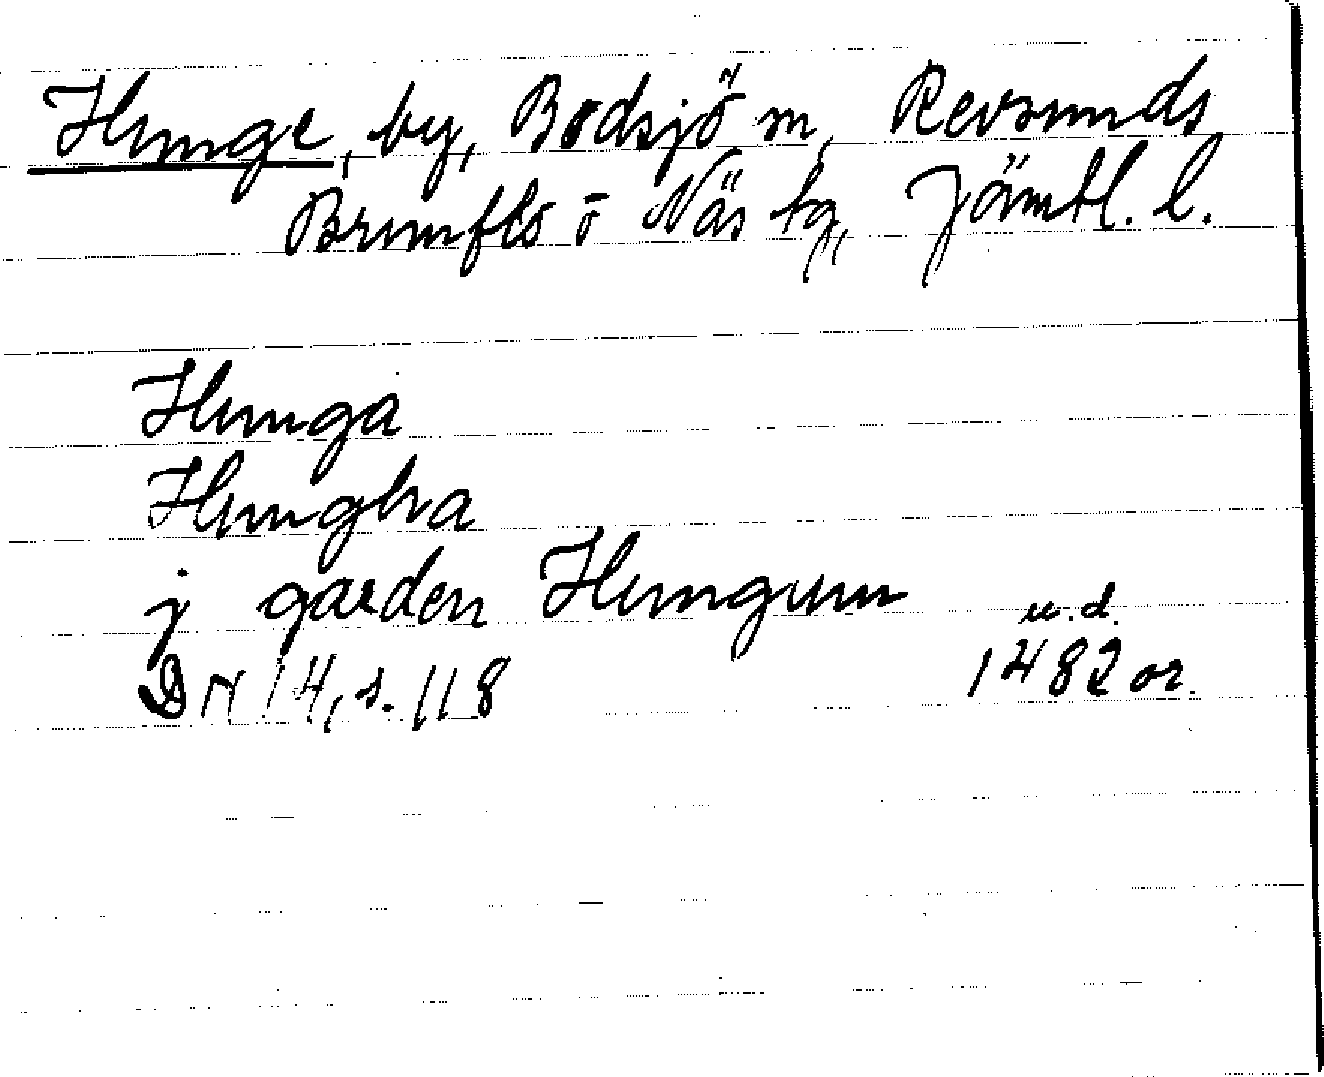 Hunge, by, Bodsjö sn, Revsunds,
Brunflo o Näs tg, Jämtl. l.
Hunga
Hunghra
j garden Hungum u.d.
DN 14, s. 118 1482 or.